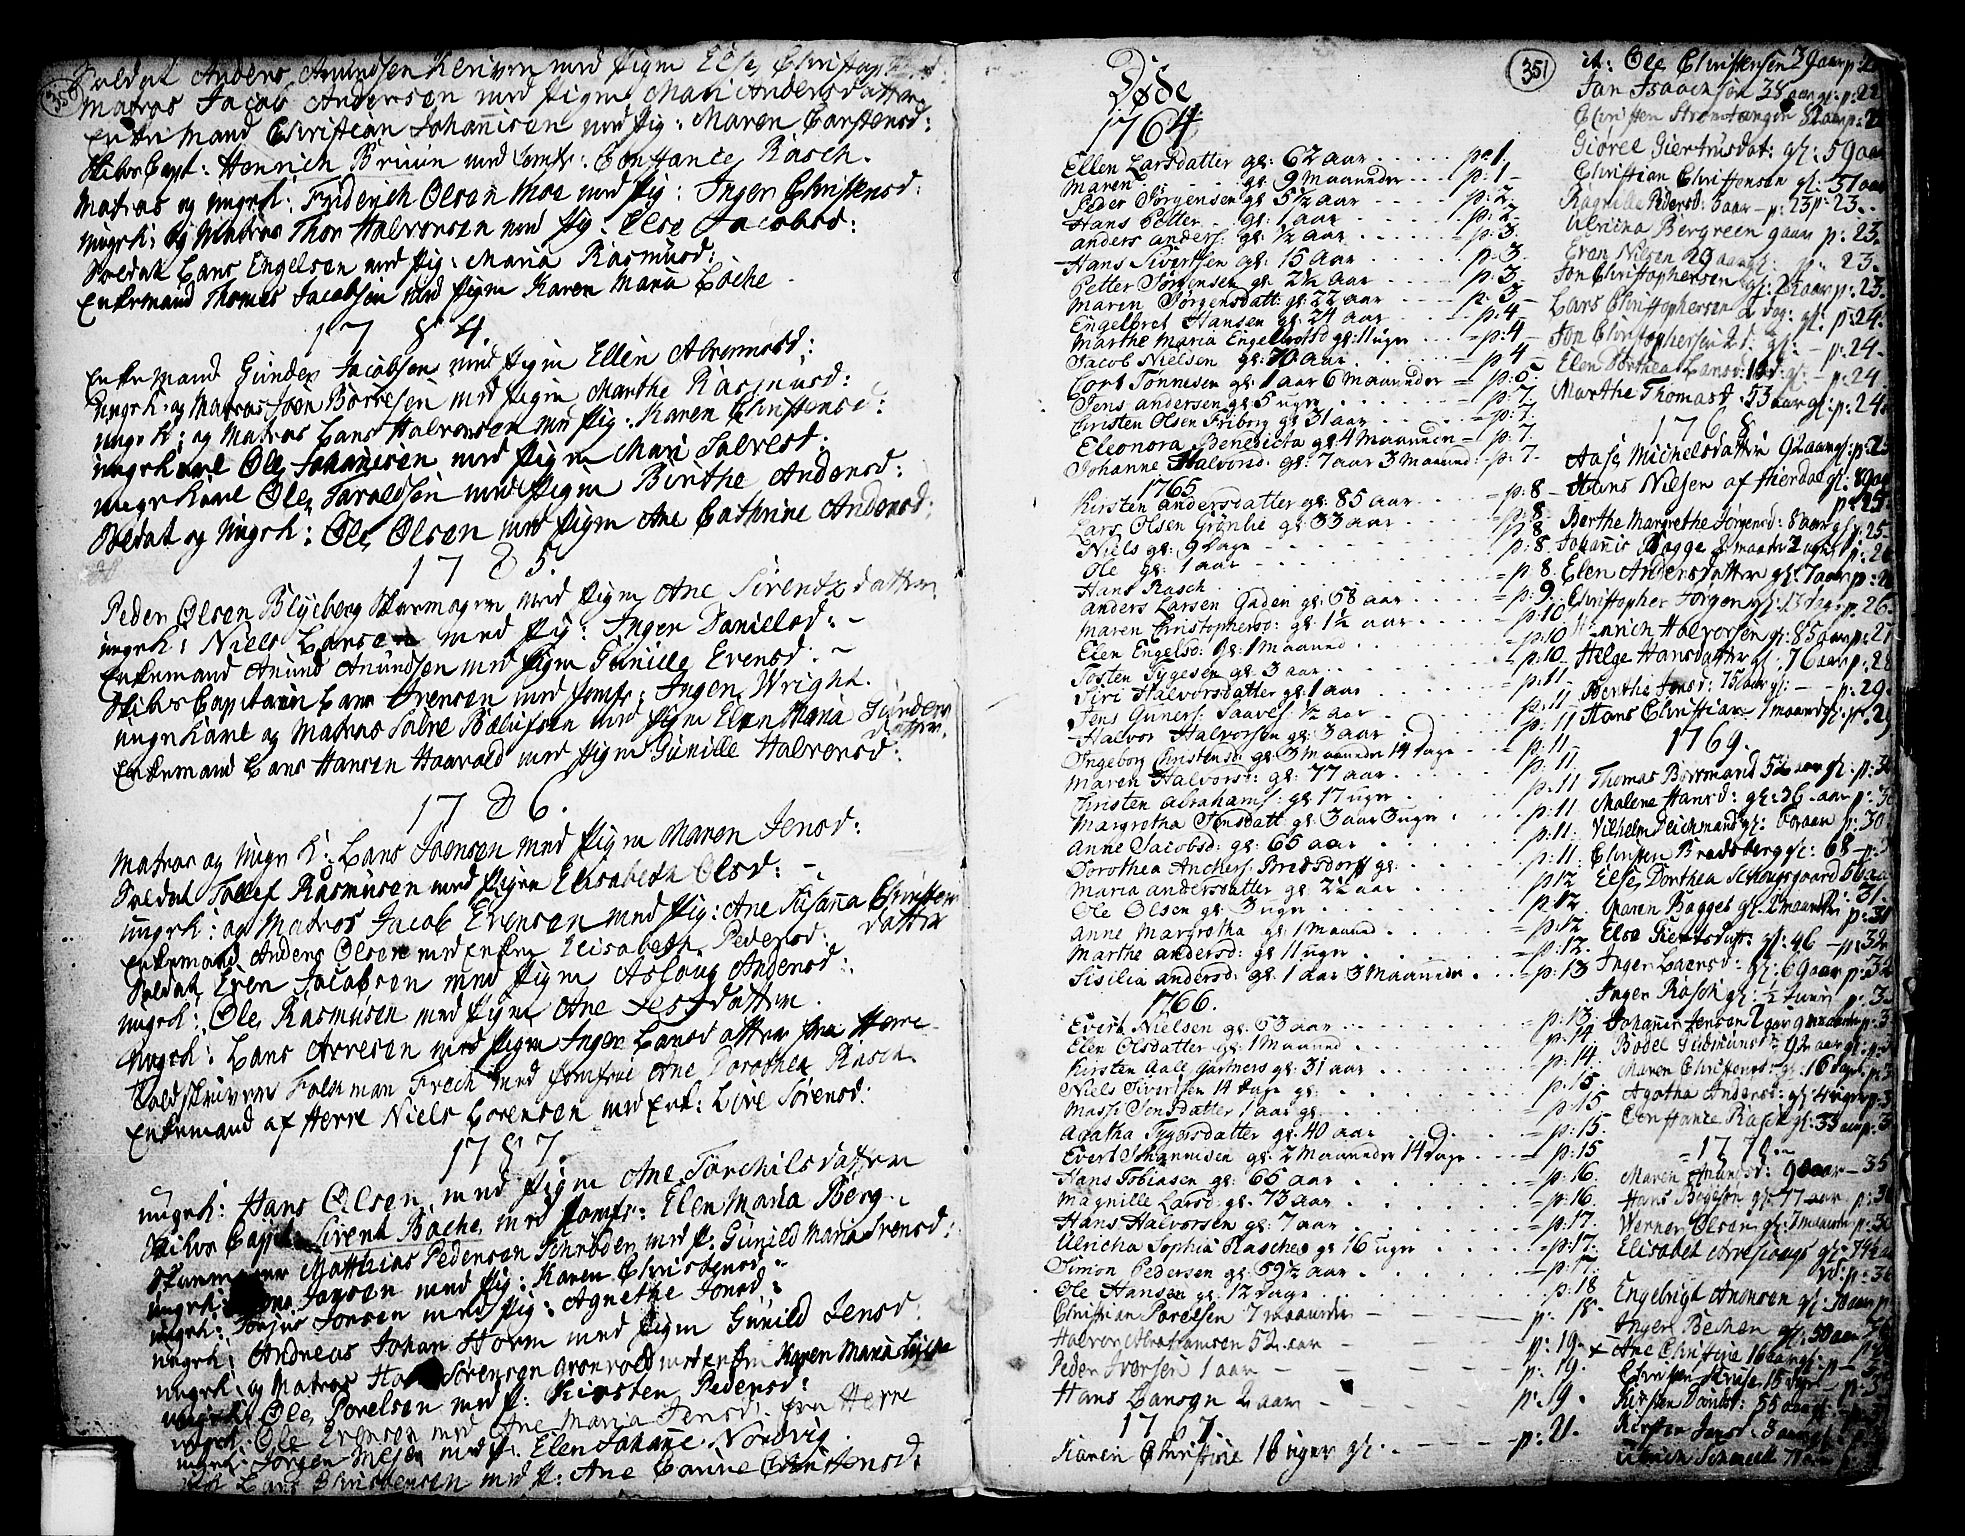 350
Soldat Anders Amundsen Keriven med Pigen Else Christophersd:
Matros Jacob Andersen med Pigen Mari Andersdatter
Enke Mand Christian Johannisen med Pig: Maren Carstensd:
Skibs Capt: Henrich Bruun med Jomfr: Constance Rasch.
Matros og ungk: Friderich Olsen Moe med Pig: Inger Christensd:
ungk: og Matros Thor Halvorsen med Pig: Else Jacobsd:
Soldat Lars Engelsen med Pig: Maria Rasmusd:
Enkemand Thomas Jacobsen med Pigen Karen Maria Bache
1784.
Enke Mand Gunder Jacobsen med Pigen Ellen
ungk: og Matros Joen Borresen med Pigen Marthe Rasmusd:
ungk: og Matros Lars Halvorsen med Pig: Karen Christensd:
ungkarl Ole Johannisen med Pigen Mari Salvesd:
ungkarl Ole Taraldsen med Pigen Birthe Andersd:
Soldat og Ungk: Ole Olsen med Pigen Ane Cathrine Andersd:
1785.
Peder Olsen Blyeberg Skoemager med Pigen Ane Sirentz datter.
ungk: Niels Larsen med Pig: Inger Danielsd: -
Enkemand Anund Anundsen med Pigen Gunille Evensd: ~
Skibs Capitain Lars Svensen med Jomfr: Inger Wright.
ungkarl og Matros Salve med Pigen Elen Maria Gunders
datter.
Enkemand Lars Hansen Haavald med Pigen Gunille Halvorsd:
1786.
Matros og ungk: Lars Joensen med Pigen Maren Jensd:
Soldat Tollef Rasmusen med Pigen Elisabeth Olsd: -
ungk: og Matros Jacob Evensen med Pig: Ane Susanna Christens
datter
Enkemand Anders Olsen med Enken Elisabeth Pedersd:
Soldat Even Jacobsen med Pigen Aslaug Andersd:
ungk: Ole Rasmusen med Pigen Ane datter.
Ungk: Lars Arvesen med Pigen Inger Larsdatter fra Herre
Toldskriver Folkman Frech med Jomfrue Ane Dorothea Rasch.
Enkemand af Herre Niels Lorensen med Enk: Live Sørensd:
1787.
ungk: Hans Olsen med Pigen Ane Torchilsdatter
Skibs Capit: Sirent Bache med Jomfr: Elen Maria Berg.
Matthias Pedersen Schrøder med P. Gunild Maria Svensd:
ungk: Jansen med Pig: Karen Christensd:
ungk: Jonsen med Pig: Agnethe Jonsd:
ungk: Andreas Johan Horn med Pigen Gunild Jensd:
ungk: og Matros Sørensen Grønvold med Enken Karen Maria
ungk: Ole Porelsen med P: Kirsten Pedersd:
ungk: Ole Evensen med Ane Maria Jensd: fra Herre
ungk: Jørgen med P: Elen Johanne Nordvig.
Lars Christensen med P: Ane Carine Christensd:
351
Døde
1764
Ellen Larsdatter gl: 62 aar . . . . . p: 1.
Maren . . . . gl: 9 Maaneder . . . p: 1.
Peder Jørgensen gl: 5½ aar . . . . p: 2.
Hans Petter . . gl: 1 aar . . . . p: 2.
Anders Anders: gl: ½ aar . . . . p: 3.
Hans Siversen gl: 15 aar . . . . p: 3.
Petter Jørgensen gl: 2½ aar . . . . p: 3.
Maren Jørgensdatt: gl: 22 aar . . . . p: 3.
Engelbret Hansen gl: 24 aar . . . . p: 4.
Marthe Maria Engelbretsd gl: 11 uger . . . p: 4.
Jacob Nielsen gl: 70 aar . . . . p: 4.
Cort Tønnesen gl: 1 aar 6 maaneder . . p: 5.
Jens Andersen gl: 5 uger . . . . p: 7.
Christen Olsen Friborg gl: 31 aar . . . p: 7.
Eleonora Benedicta gl: 4 maaneder . . p: 7.
Johanne Halvorsd: gl: 7 aar 3 maaned: . . p: 7.
1765
Kirsten Andersdatter gl: 85 aar . . . p: 8.
Lars Olsen Grønlie gl: 33 aar . . . p: 8.
Niels gl: 9 Dage . . . . p: 8
Ole gl: 1 aar . . . . p: 8.
Hans Rasch . . . . p: 8.
Anders Larsen Gaden gl: 58 aar . . . p: 9.
Maren Christophersd: gl: 1½ aar . . . p: 10
Elen Engelsd: gl: 1 Maaned . . . p: 10
Tosten Tygesen gl: 3 aar . . . p: 10.
Siri Halvorsdatter gl: 1 aar . . . p: 11.
Jens Guners: Saaves: ½ aar . . . p: 11
Halvor Halvorsen gl: 3 aar . . . p: 11
Ingeborg Christensd: gl: 3 Maaneder 14 Dage . . p: 11.
Maren Halvorsd: gl: 77 aar . . . p: 11.
Christen Abrahams: gl: 17 uger . . . p: 11
Margretha Jensdatt gl: 3 aar 3 uger . . . p: 11
Anne Jacobsd: gl: 65 aar . . . p: 11.
Dorothea Anchers: Bredsdorff gl: . . . p: 11.
Maria Andersdatter gl: 22 aar . . . p: 12
Ole Olsen gl: 3 uger . . . p: 12.
Anne Margretha gl: 1 Maaned . . . p: 12
Marthe Andersd: gl: 11 uger . . . p: 12.
Sicilia Andersd: gl: 1 aar 3 Maaneder . . . p: 13
1766.
Evert Nielsen gl: 53 aar . . . p: 13.
Elen Olsdatter gl: 1 Maaned . . . p: 14
Kirsten Aall Gartners gl: 31 aar . . . p: 14.
Niels Siversen 14 Dage gl: . . . p: 15.
Masse Jensdatter 1 aar gl: . . . p: 15
Agatha Tygersdatter gl: 40 aar . . . p: 15.
Evert Johannisen gl: 2 Maaneder 14 Dage . . . p: 15
Hans Tobiasen gl: 65 aar . . . p: 16.
Magnille Larsd: gl: 73 aar . . . p: 16.
Hans Halvorsen gl: 7 aar . . . p: 17.
Ulricha Sophia Rasches gl 16 uger . . . p: 17.
Simon Pedersen gl: 59½ aar . . . p: 17.
Ole Hansen gl: 12 dage . . . p: 18
Christian Porelsen 7 maaneder - - - p: 18.
Halvor Abrahamsen 52 aar - - - p: 19.
Peder Iversen 1 aar - - - p: 19.
Hans Larsen 2 aar - - - p: 19.
1767.
Karen Christine 16 uger gl: - - - p: 21.
it: Ole Christensen 39 aar p: 22
Jan Isaachsen 38 aar gl: p: 22
Christen Strømtangen 82 aar p: 22
Giørel Giertrusdat: gl: 59 aar
Christian Christensen gl: 31 aar
Ragnille Pedersd: 3 aar - p: 23 p: 23.
Ulricha Bergreen 9 aar p: 23.
Evan Nilsen 29 aar gl: p: 23.
Jon Christophersen gl: 25 aar p: 23.
Lars Christophersen 2 dag: gl: p: 24.
Jon Christophersen 2 d: gl: - p: 24.
Elen Dorthea Larsd: 10 d: gl: - p: 24.
Marthe Thomasd: 53 aar gl: p: 24.
1768
Aase Michelsdatter 92 aar gl: p: 25
Hans Nilsen af Hierdal gl: 89 aar
p: 25.
Berthe Margrethe Jørgensd: 8 aar gl: p: 25.
Johannis Bagge 2 maander 2 uger p: 26
Elen Andersdatter gl: 7 aar p: 26
Christopher Jørgens gl: 13 dage p: 26.
Henrich Halvorsen gl: 85 aar p: 27
Helge Hansdatter gl: 76 aar p: 28
Berthe Jensd: 75 aar gl: - - p: 29.
Hans Christian 1 maaned gl: p: 29
1769.
Thomas Borrmand 52 aar gl: p: 30
Malene Hansd: gl: 36 aar p: 30
Vilhelm Deichmand gl: aar p: 30
Christen Bradsberg gl: 68 p:
Else Dorthea Schougaard 66 aar
p: 31.
Karen Bagges gl: 2 maander p: 31
Else Giertsdatt: gl: 46 - p: 32
Inger Laersd: gl: 69 aar p: 32
Inger Rasch gl: ½ time p: 3
Johannis Jensen 2 aar 9 maander p: 3
Bodel Gudmunsd: 92 aar gl: p: 3
Maren Christensd: gl: 16 dage p: 3
Agatha Andersd: gl: 4 uger p: 3
Constance Rasch gl: 33 aar p: 3
1770.
Maren Amundsd: 90 aar - 35
Hans Bigeson gl: 77 aar p: 36
Werner Olsen gl: 7 maander p: 36
Elisabet gl: 74½ aar
p: 36
Engebrigt Anonsen gl: 70 aar p
Inger Bechen gl: 50 aar
+ Ane Christine 16 aar gl: p
Christen 15 dage - p: 3
Kirsten Davidsd: 55 aar gl p
Kirsten Jansd: 3 aar
Ulrich Schmidt 71 aar